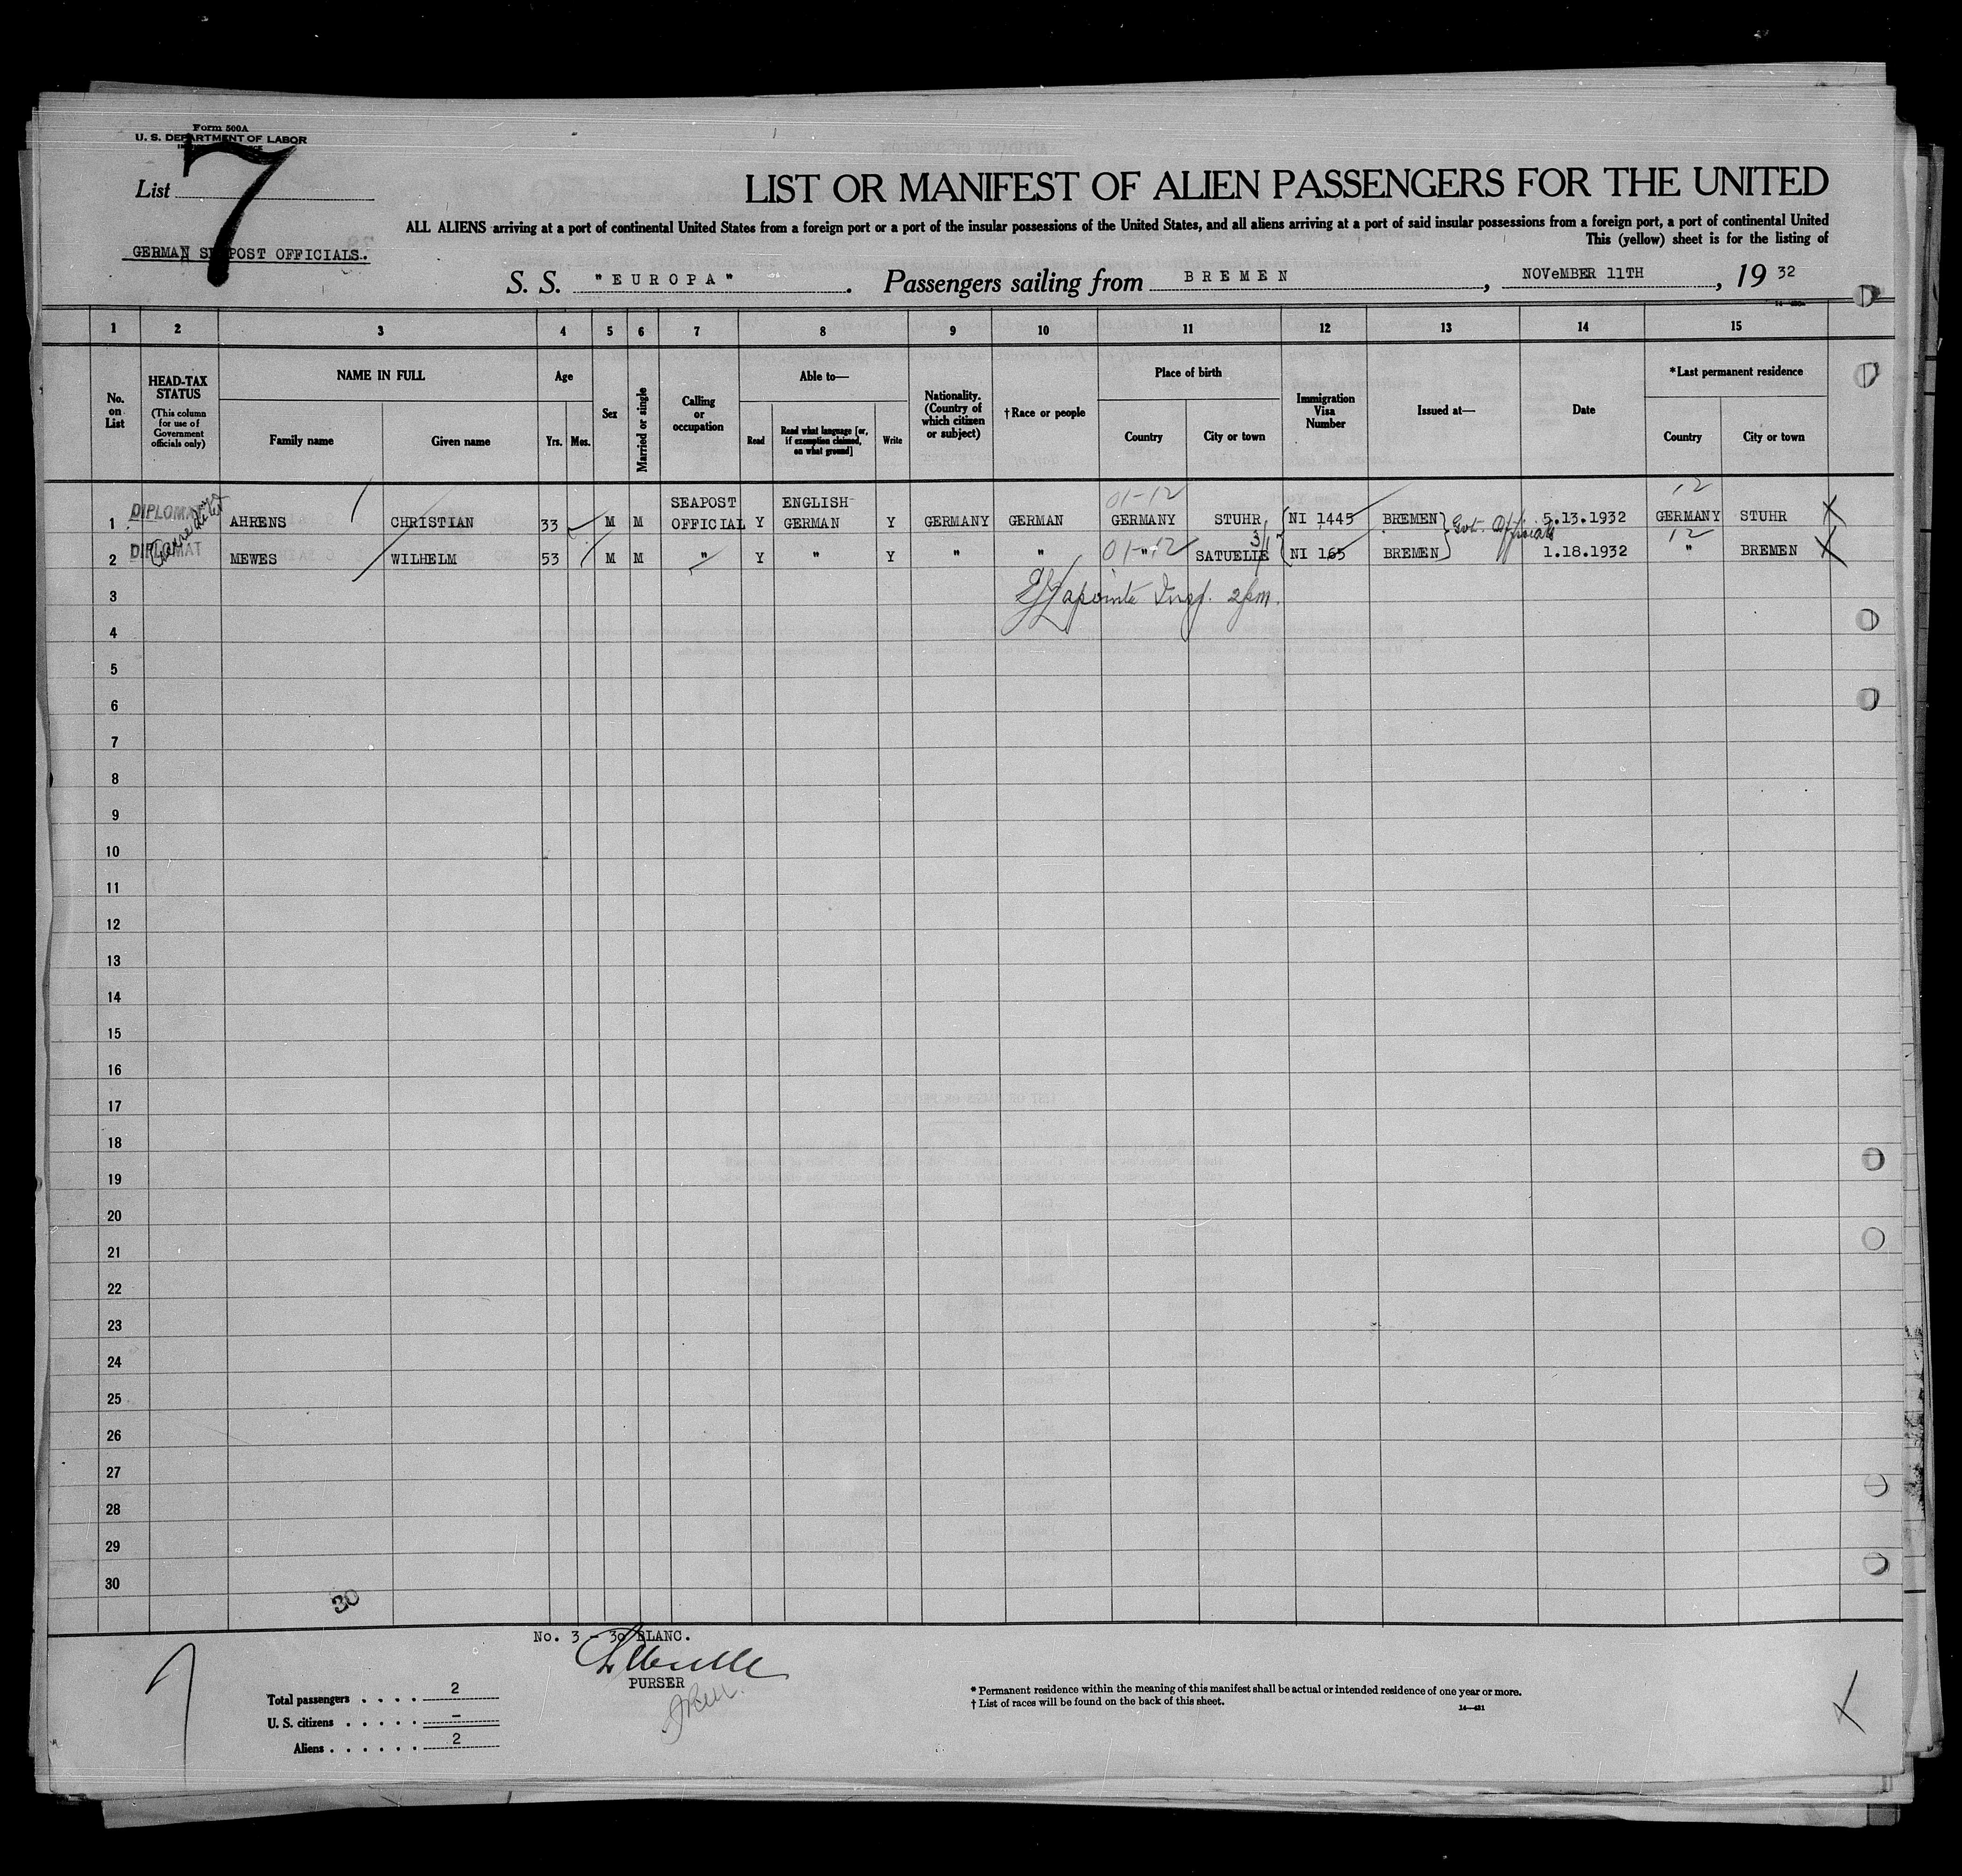 Form 500A
U. S. DEPARTMENT OF LABOR
List 7
LIST OR MANIFEST OF ALIEN PASSENGERS FOR THE UNITED
ALL ALIENS arriving at a port of continental United States from a foreign port or a port of the insular possessions of the United States, and all aliens arriving at a port of said insular possessions from a foreign port, a port of continental United
This (yellow) sheet is for the listing of
GERMAN SEAPOST OFFICIALS.
S. S. "EUROPA". Passengers sailing from BREMEN, NOVeMBER 11TH, 19 32
1 2 3 4 5 6 7 8 9 10 11 12 13 14 15
No. on List
HEAD-TAX STATUS
(This column for use of Government officials only)
NAME IN FULL
Family name Given name
Age
Yrs. Mos.
Sex
Married or single
Calling or occupation
Able to—
Read
Read what language [or, if exemption claimed, on what ground]
Write
Nationality. (Country of which citizen or subject)
† Race or people
Place of birth
Country City or town
Immigration Visa Number
Issued at—
Date
*Last permanent residence
Country City or town
01-12 12
1 DIPLOMAT AHRENS CHRISTIAN 33 M M SEAPOST OFFICIAL Y ENGLISH GERMAN Y GERMANY GERMAN GERMANY STUHR NI 1445 BREMEN Gvt. Officials 5.13.1932 GERMANY STUHR X
01-12 12
2 DIPLOMAT MEWES WILHELM 53 M M " Y " Y " " " SATUELIE NI 165 BREMEN 1.18.1932 " BREMEN X
3 Lapointe Insp. 2pm.
4
5
6
7
8
9
10
11
12
13
14
15
16
17
18
19
20
21
22
23
24
25
26
27
28
29
30
30
No. 3 - 30 BLANC.
PURSER
Total passengers . . . . 2
U. S. citizens . . . . . –
Aliens . . . . . . 2
* Permanent residence within the meaning of this manifest shall be actual or intended residence of one year or more.
† List of races will be found on the back of this sheet.
14—421